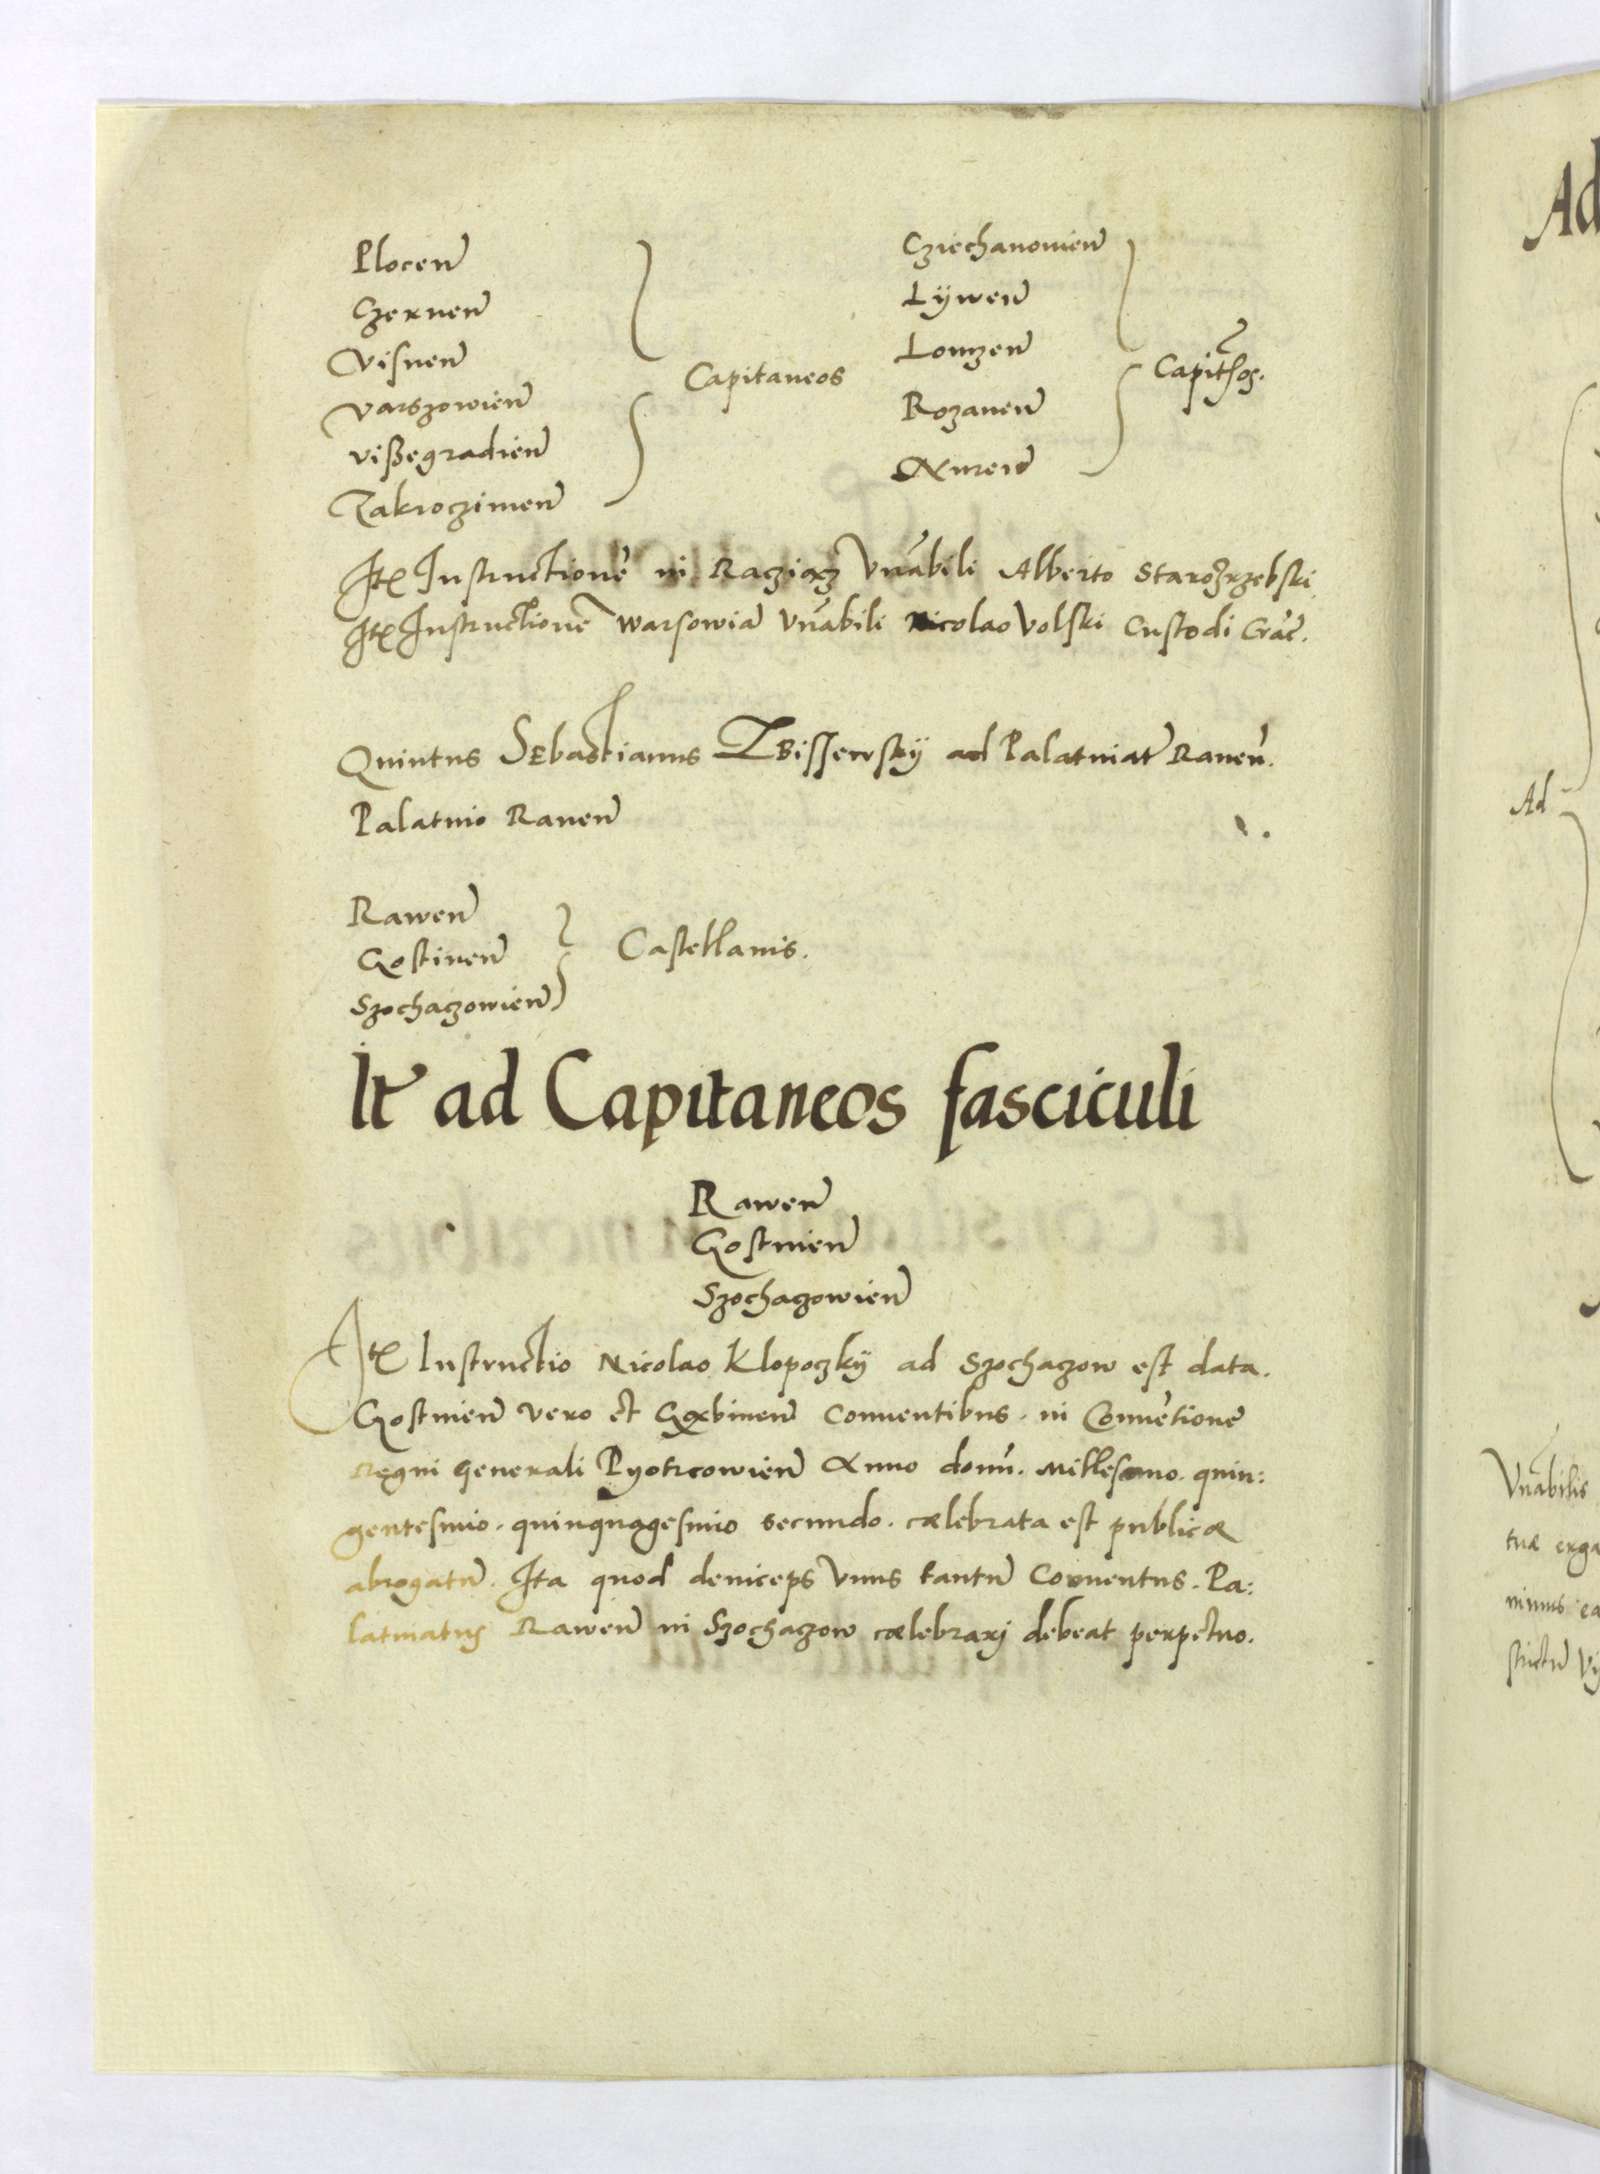 Plocen
Czernen
Visnen
Varszowien
vissegradien
Zakroczimen
Capitaneos
Cziechanowien
Lywen
Lomzen
Rozanen
Capitaneos.
Itē Instructionē in Racziącz Vnābili Alberto Starozrzebski
Itē Instructionē Warsowiā Vnābili Nicolao Volski Custodi Grāc.
Quintus Sebastianus Zbissewsky ad Palatinat Rauen.
Palatino Rauen
Rawen
Gostinen
Szochaczowien
Castellanis.
It ad Capitaneos fasciculi
Rawen
Gostinen
Szochaczowien
Itē Instructio Nicolao Klopoczky ad Szochaczow est data.
Gostinen vero et Gąbinen Conuentibus. in Conuētione
Regni generali Pyotrcowien Anno domi. Millesimo. quin:
gentesimo. quinquagesimo secundo. cælebrata est publicæ
abrogatū. Ita quod deinceps Vnus tantū Conuentus. Pa:
latinatus Rawen in Szochaczow cælebrari debeat perpetuo.
Ad
Ad
Vnābilis
tuæ erga